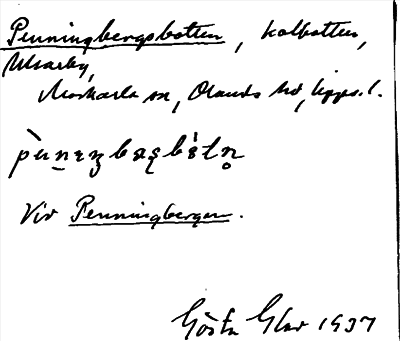 Penningbergsbotten, kolbotten,
Ulvarby,
Morkarla sn, Olands hd, Upps. l.
pènenzbærgbòtn̥
Vid Penningbergen.
Gösta Glad 1937